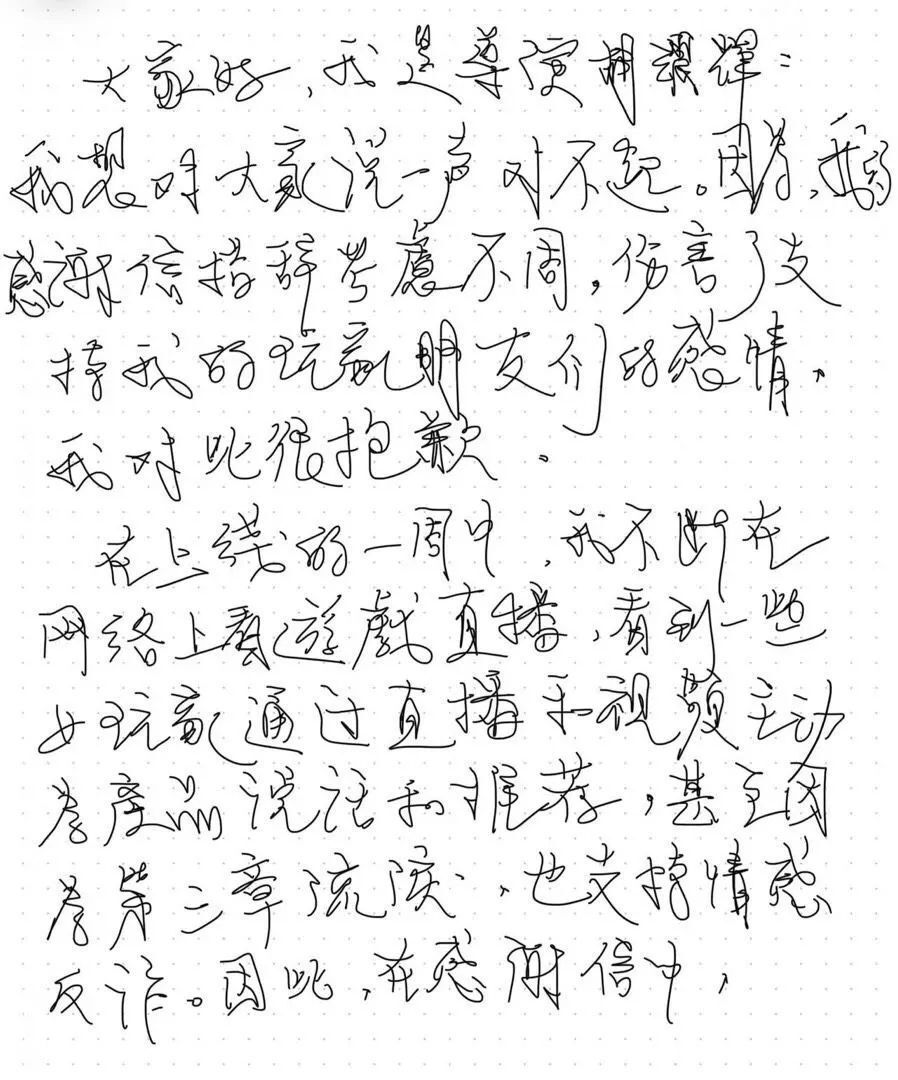 大家好,我是導演胡耀輝:
我想对大家说一声对不起。因為,我的
感謝信措辞考慮不周,伤害了支
持我的玩家朋友们的感情,
我对此很抱歉.
在上线的一周中,我不断在
网络上看遊戲直播,看到一些
女玩家通过直播和视频主动
為產品说话和推荐,甚至因
為第三章流淚,也支持情感
反诈。因此,在感謝信中,